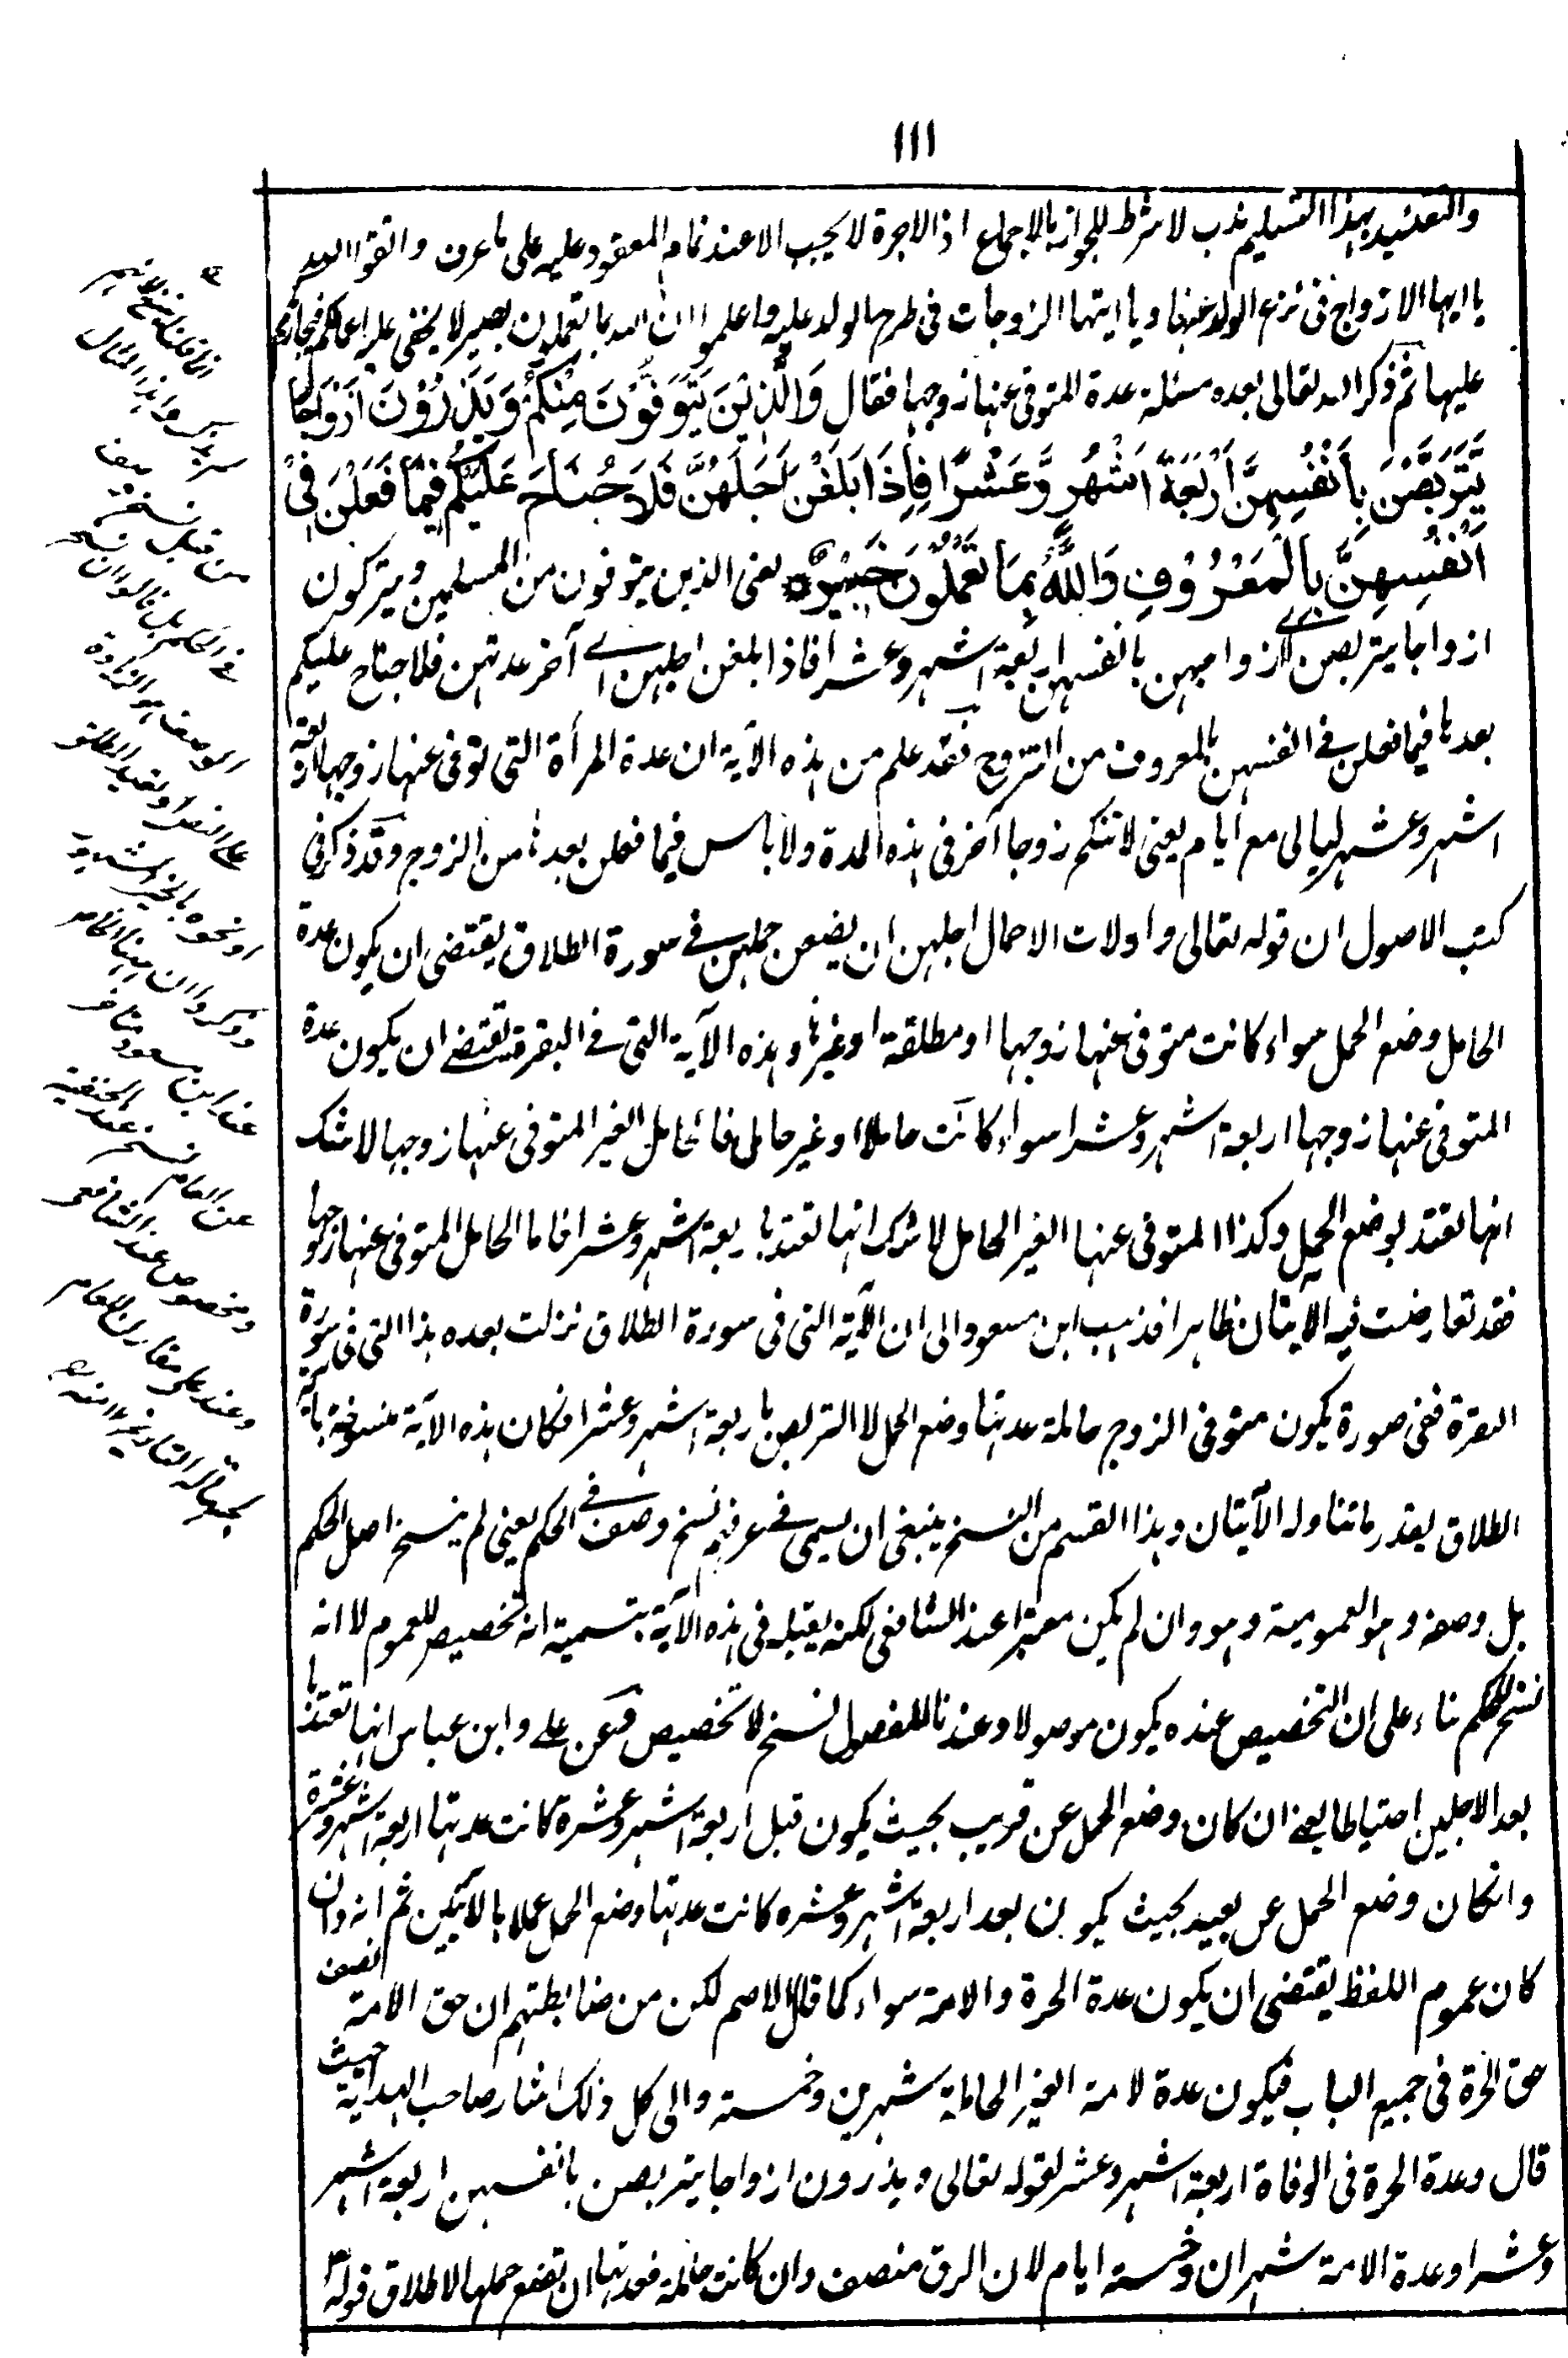 ١١١
والتقييد بهذا التسليم ندب لا شرط للجواز بالاجماع اذ الاجرة لا يجب الا عند تمام المعقود عليه على ما عرف واتقوا الله
يا ايها الازواج فى نزع الولد عنها ويا ايتها الزوجات فى طرح الولد عليه واعلموا ان الله بما تعملون بصير لا يخفى عليه اعمالكم فيجازيكم
عليها ثم ذكر الله تعالى بعده مسئلة عدة المتوفى عنها زوجها فقال وَالَّذِيْنَ يُتَوَفَّوْنَ مِنْكُمْ وَيَذَرُوْنَ اَزْوَاجًا
يَّتَرَبَّصْنَ بِاَنْفُسِهِنَّ اَرْبَعَةَ اَشْهُرٍ وَّعَشْرًا فَاِذَا بَلَغْنَ اَجَلَهُنَّ فَلَا جُنَاحَ عَلَيْكُمْ فِيْمَا فَعَلْنَ فِىْ
اَنْفُسِهِنَّ بِالْمَعْرُوْفِ وَاللّٰهُ بِمَا تَعْمَلُوْنَ خَبِيْرٌ يعنى الذين يتوفون من المسلمين ويتركون
ازواجا يتربصن اى ازواجهن بانفسهن اربعة اشهر وعشرا فاذا بلغن اجلهن اے آخر عدتهن فلا جناح عليكم
بعدها فيما فعلن فے انفسهن بالمعروف من التزوج فقد علم من هذه الآية ان عدة المرأة التى توفى عنها زوجها اربعة
اشهر وعشر ليالى مع ايام يعنى لا تنكح زوجا آخر فى هذه المدة ولا باس فيما فعلن بعدها من الزوج وقد ذكر فى
كتب الاصول ان قوله تعالى واولات الاحمال اجلهن ان يضعن حملهن فے سورة الطلاق يقتضى ان يكون عدة
الحامل وضع الحمل سواء كانت متوفى عنها زوجها او مطلقة او غيرها وهذه الآية التى فے البقرة تقتضے ان يكون عدة
المتوفى عنها زوجها اربعة اشهر وعشرا سواء كانت حاملا او غير حامل فالحامل الغير المتوفى عنها زوجها لا شك
انها تعتد بوضع الحمل وكذا المتوفى عنها الغير الحامل لا شك انها تعتد باربعة اشهر وعشرا فاما الحامل المتوفى عنها زوجها
فقد تعارضت فيه الآيتان ظاهرا فذهب ابن مسعود الى ان الآية التى فى سورة الطلاق نزلت بعد هذا التى فى سورة
البقرة ففى صورة يكون متوفى الزوج حاملة عدتها وضع الحمل لا التربص باربعة اشهر وعشرا فكان هذه الآية منسوخة بآية
الطلاق بقدر ما تناوله الآيتان وهذا القسم من النسخ ينبغى ان يسمى فے عرفهم نسخ وصف فے الحكم يعنى لم ينسخ اصل الحكم
بل وصفه وهو العمومية وهو وان لم يكن معتبرا عند الشافعى لكنه يقبله فى هذه الآية بتسمية انه تخصيص للعموم لا انه
نسخ للحكم بناء على ان التخصيص عنده يكون موصولا وعندنا للمفصول نسخ لا تخصيص وعن على وابن عباس انها تعتد
بعد الاجلين احتياطا يعنے ان كان وضع الحمل عن قريب بحيث يكون قبل اربعة اشهر وعشرة كانت عدتها اربعة اشهر وعشرة
وانكان وضع الحمل عن بعيد بحيث يكون بعد اربعة اشهر وعشره كانت عدتها وضع الحمل عملا بالآيتين ثم انه وان
كان عموم اللفظ يقتضى ان يكون عدة الحرة والامة سواء كما قال الاصم لكن من ضابطتهم ان حق الامة نصف
حق الحرة فى جميع الباب فيكون عدة لامة الغير الحاملة شهرين وخمسة والى كل ذلك اشار صاحب الهداية حيث
قال وعدة الحرة فى الوفاة اربعة اشهر وعشر لقوله تعالى ويذرون ازواجا يتربصن بانفسهن اربعة اشهر
وعشرا وعدة الامة شهران وخمسة ايام لان الرق منصف وان كانت حاملة فعدتها ان تضع حملها لاطلاق قوله
من قبيل نسخ وصف
فے الحكم
عن ابن مسعود
نسخ عند الحنفية
ومخصوص عند الشافعى